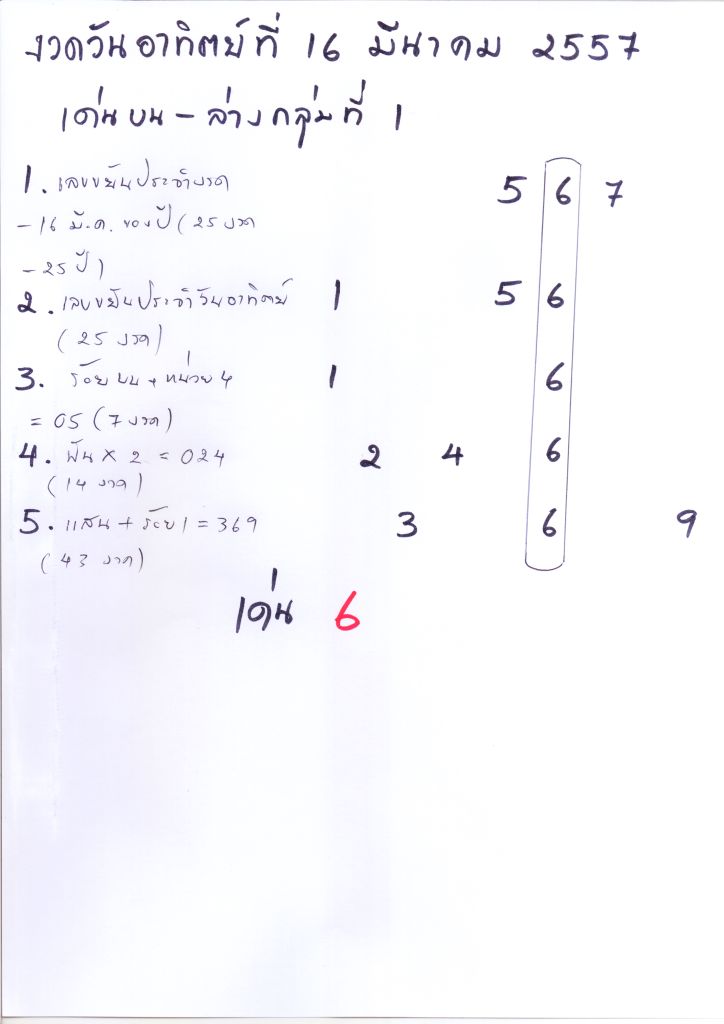 งวดวันอาทิตย์ที่ 16 มีนาคม 2557
เด่นบน - ล่างกลุ่มที่ 1
1. เลขขยันประจำงวด 5 6 7
- 16 มี.ค. ของปี (25 งวด
- 25 ปี)
2. เลขขยันประจำวันอาทิตย์ 1 5 6
(25 งวด)
3. ร้อยบน + หน่วย 4 1 6
= 05 (7 งวด)
4. พัน × 2 = 024 2 4 6
(14 งวด)
5. แสน + ร้อย 1 = 369 3 6 9
(43 งวด)
เด่น 6